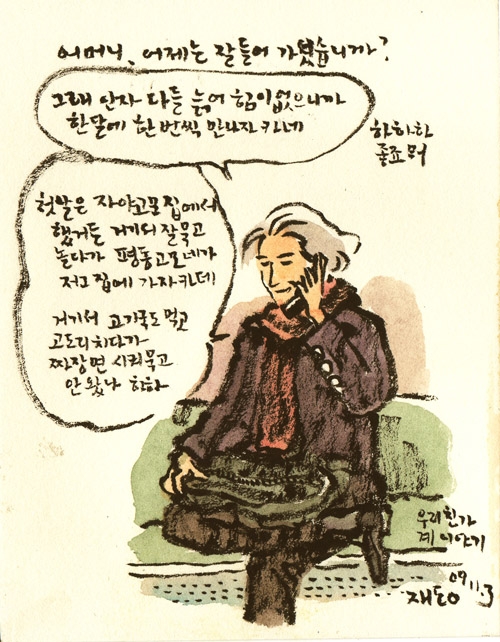 어머니, 어제는 잘들어 가셨습니까?
그래 안자 다들 늙어 힘이없으니까
한달에 한번씩 만나자 카네
하하하
좋죠 뭐
첫날은 자야고모집에서
했거든 거기서 잘묵고
놀다가 평동고모네가
저그집에 가자카데
거기서 고기국도 먹고
고도리치다가
짜장면 시켜묵고
안왔나 하하
우리친가
계 이야기
재동 09.11.3